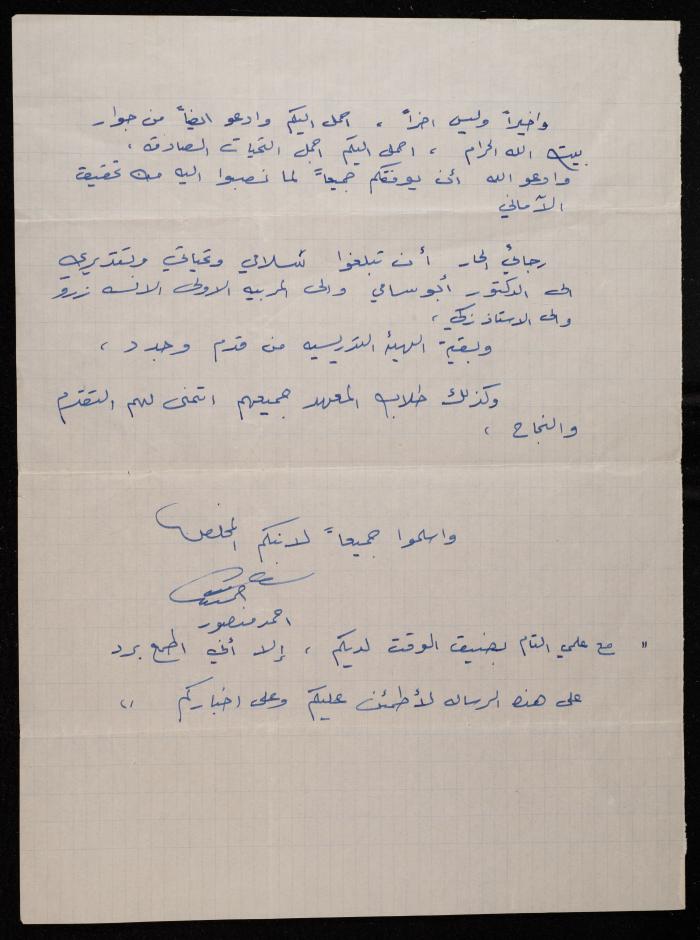 واخيراً وليس اخراً ، احمل اليكم وادعو ايضاً من جوار
بيت الله الحرام ، احمل اليكم اجمل التحيات الصادقه ،
وادعو الله أن يوفقكم جميعاً لما تصبوا اليه من تحقيق
الآماني
رجائي الحار أن تبلغوا سلامي وتحياتي وتقديري
الى الدكتور أبو سامي والى المربيه الاولى الانسه زرو
والى الاستاذ زكي ،
وبقية الهيئه التدريسيه من قدم وجدد ،
وكذلك طلاب المعهد جميعهم اتمنى لهم التقدم
والنجاح ،
واسلموا جميعاً لابنكم المخلص
احمد منصور
" مع علمي التام بضيق الوقت لديكم ، إلا أني اطمع برد
على هذه الرساله لأطمئن عليكم وعلى اخباركم "